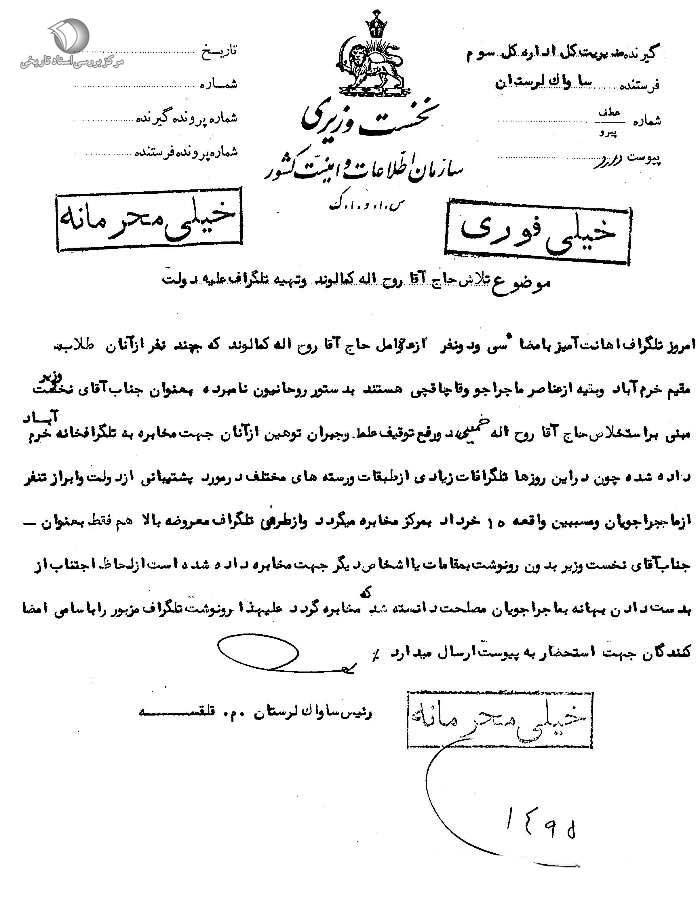 مرکز بررسی اسناد تاریخی
گیرنده مدیریت کل اداره کل سوم
فرستنده ساواك لرستان
شماره عطف
پیرو
پیوست دارد
نخست وزیری
سازمان اطلاعات و امنیت کشور
س.ا.و.ا.ک
تاریخ
شماره
شماره پرونده گیرنده
شماره پرونده فرستنده
خیلی فوری
خیلی محرمانه
موضوع تلاش حاج آقا روح اله کمالوند وتهیه تلگراف علیه دولت
امروز تلگراف اهانت آمیز بامضاء سی ودونفر ازعوامل حاج آقا روح اله کمالوند که چند نفر ازآنان طلاب
مقیم خرم آباد وبقیه ازعناصر ماجراجو وقاچاقچی هستند بدستور روحانیون نامبرده بعنوان جناب آقای نخست وزیر
مبنی براستخلاص حاج آقا روح اله خمینی ورفع توقیف علما وجبران توهین ازآنان جهت مخابره به تلگرافخانه خرم آباد
داده شده چون دراین روزها تلگرافات زیادی ازطبقات ورسته های مختلف درمورد پشتیبانی ازدولت وابراز تنفر
ازماجراجویان ومسببین واقعه ۱۵ خرداد بمرکز مخابره میگردد وازطرفی تلگراف معروضه بالا هم فقط بعنوان –
جناب آقای نخست وزیر بدون رونوشت بمقامات یا اشخاص دیگر جهت مخابره داده شده است ازلحاظ اجتناب از
بدست دادن بهانه بماجراجویان مصلحت دانسته شد که مخابره گردد علیهذا رونوشت تلگراف مزبور را با سامی امضا
کنندگان جهت استحضار به پیوست ارسال میدارد ٪
رئیس ساواك لرستان .م. قلقسه
خیلی محرمانه